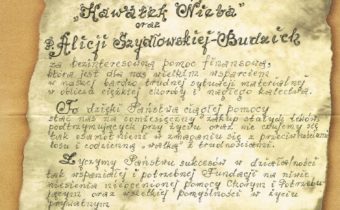 „Kawałek Nieba"
oraz
P. Alicji Szydłowskiej-Budzich
za bezinteresowną pomoc finansową,
która jest dla nas wielkim wsparciem
w naszej bardzo trudnej sytuacji materialnej
w obliczu ciężkiej choroby i nagłego kalectwa.
To dzięki Państwa ciągłej pomocy
stać nas na comiesięczny zakup stałych leków
podtrzymujących przy życiu oraz nie czujemy się
tak osamotnieni w zmaganiu się z przeciwnościami
losu i codzienną „walką" z trudnościami.
Życzymy Państwu sukcesów w działalności
tak wspaniałej i potrzebnej Fundacji na niwie
niesienia nieocenionej pomocy Chorym i Potrzebu-
jącym oraz wszelkiej pomyślności w życiu
prywatnym